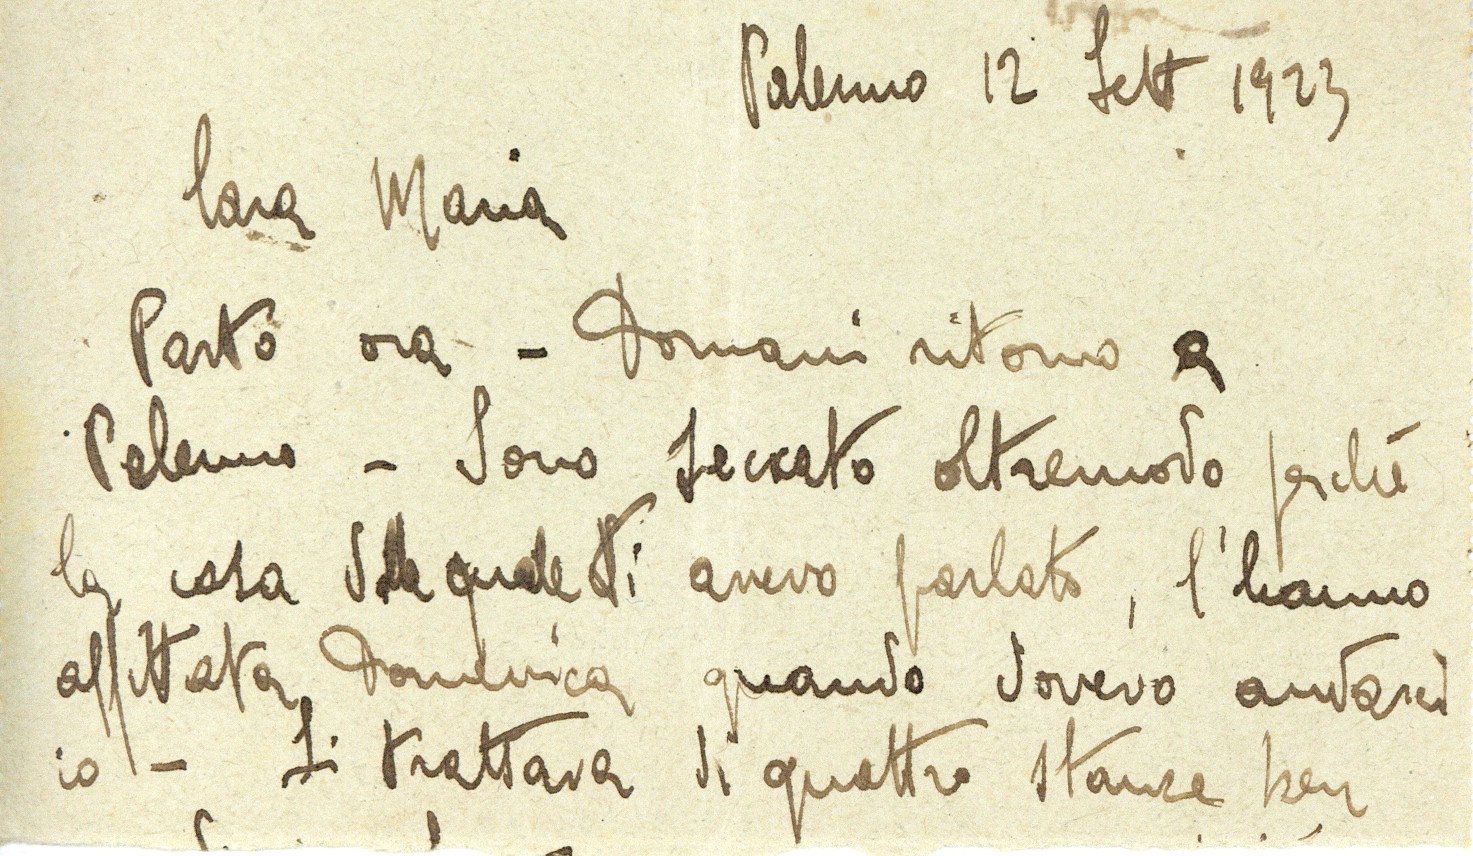 Palermo 12 Sett 1923
Cara Maria
Parto ora - Domani ritorno a
Palermo - Sono seccato oltremodo perché
la casa della quale ti avevo parlato, l'hanno
affittata Domenica quando dovevo andarci
io - Si trattava di quattro stanze ben